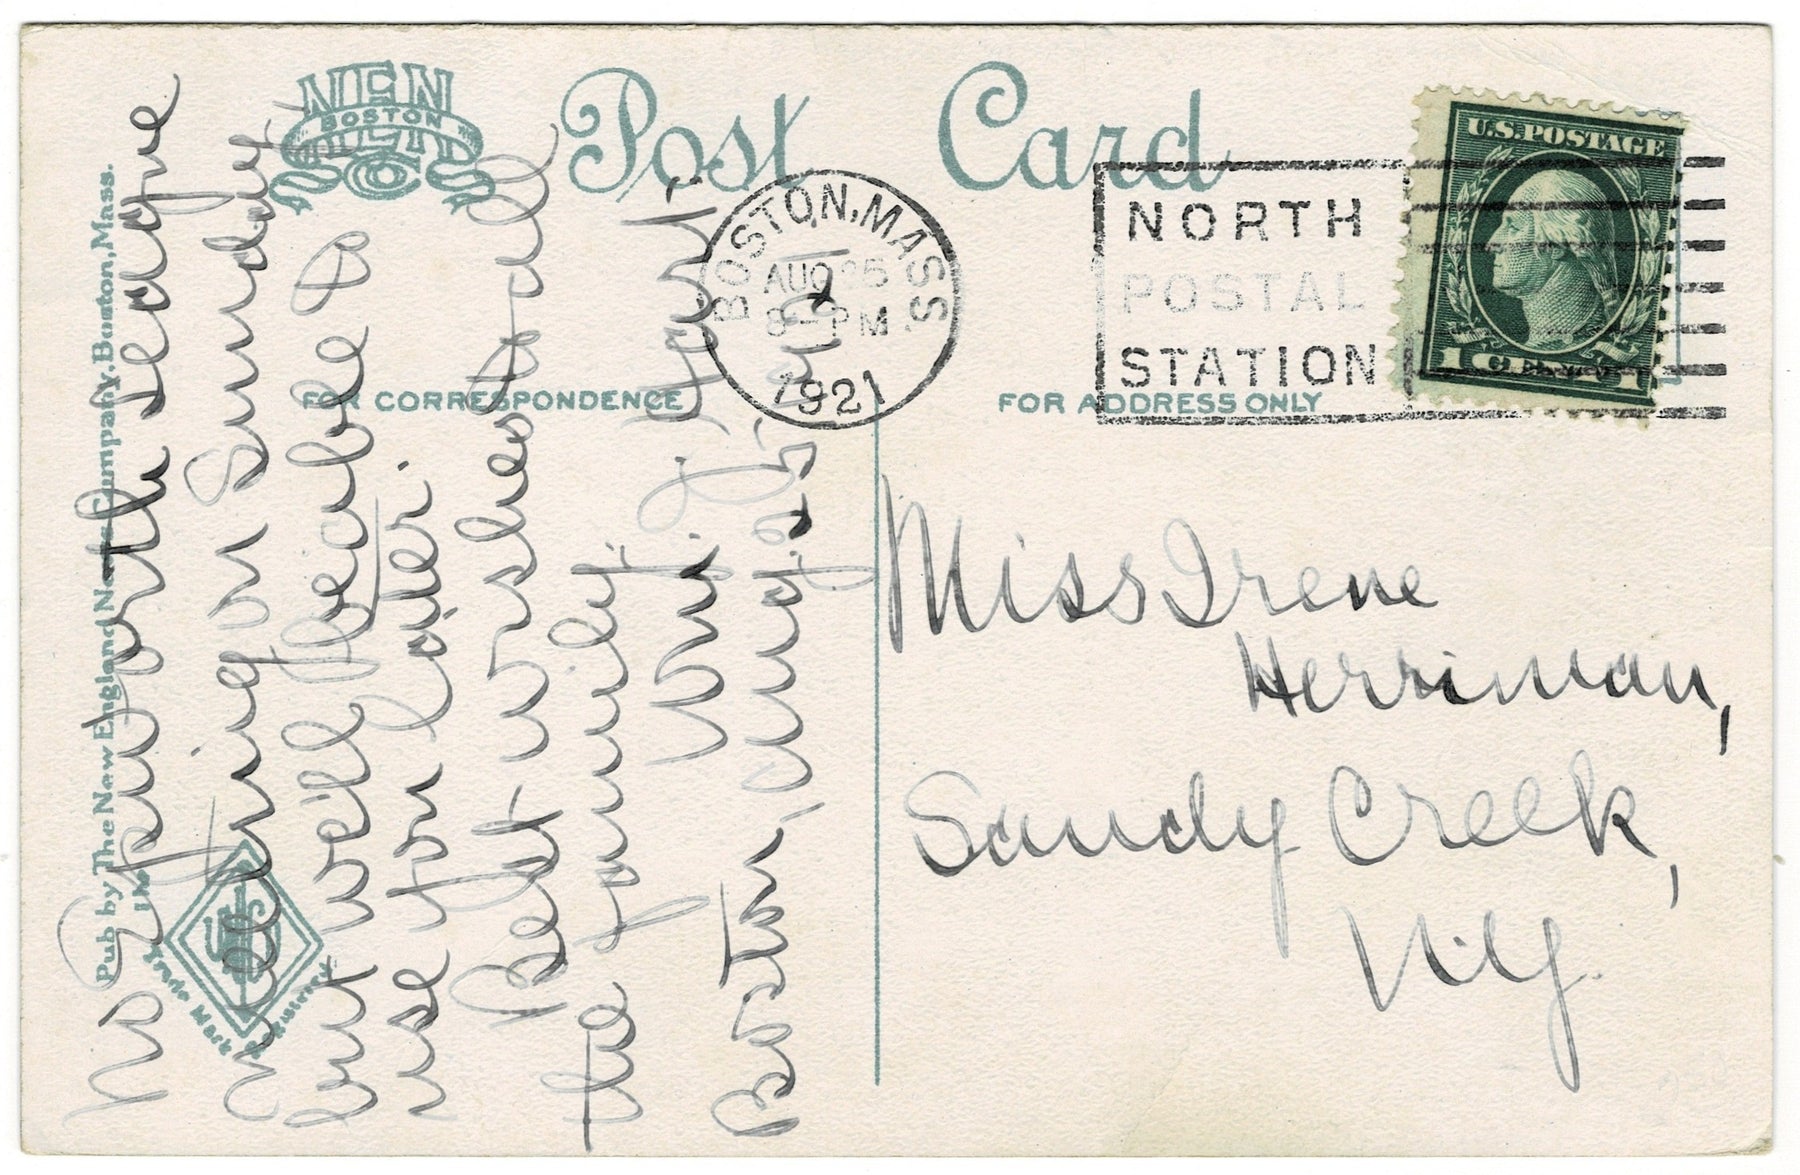 Post Card
BOSTON
BOSTON, MASS
AUG 25
8 - PM
1921
NORTH
POSTAL
STATION
U.S. POSTAGE
1 CENT 1
FOR CORRESPONDENCE
FOR ADDRESS ONLY
Pub by The New England News Company, Boston, Mass.
Trade Mark
No Epworth League
meeting on Sunday
but will be able to
use you later.
Best wishes to all
the family.
Wm. J. Hart.
Boston, Aug. 25, 1921
Miss Irene
Herriman,
Sandy Creek,
N.Y.